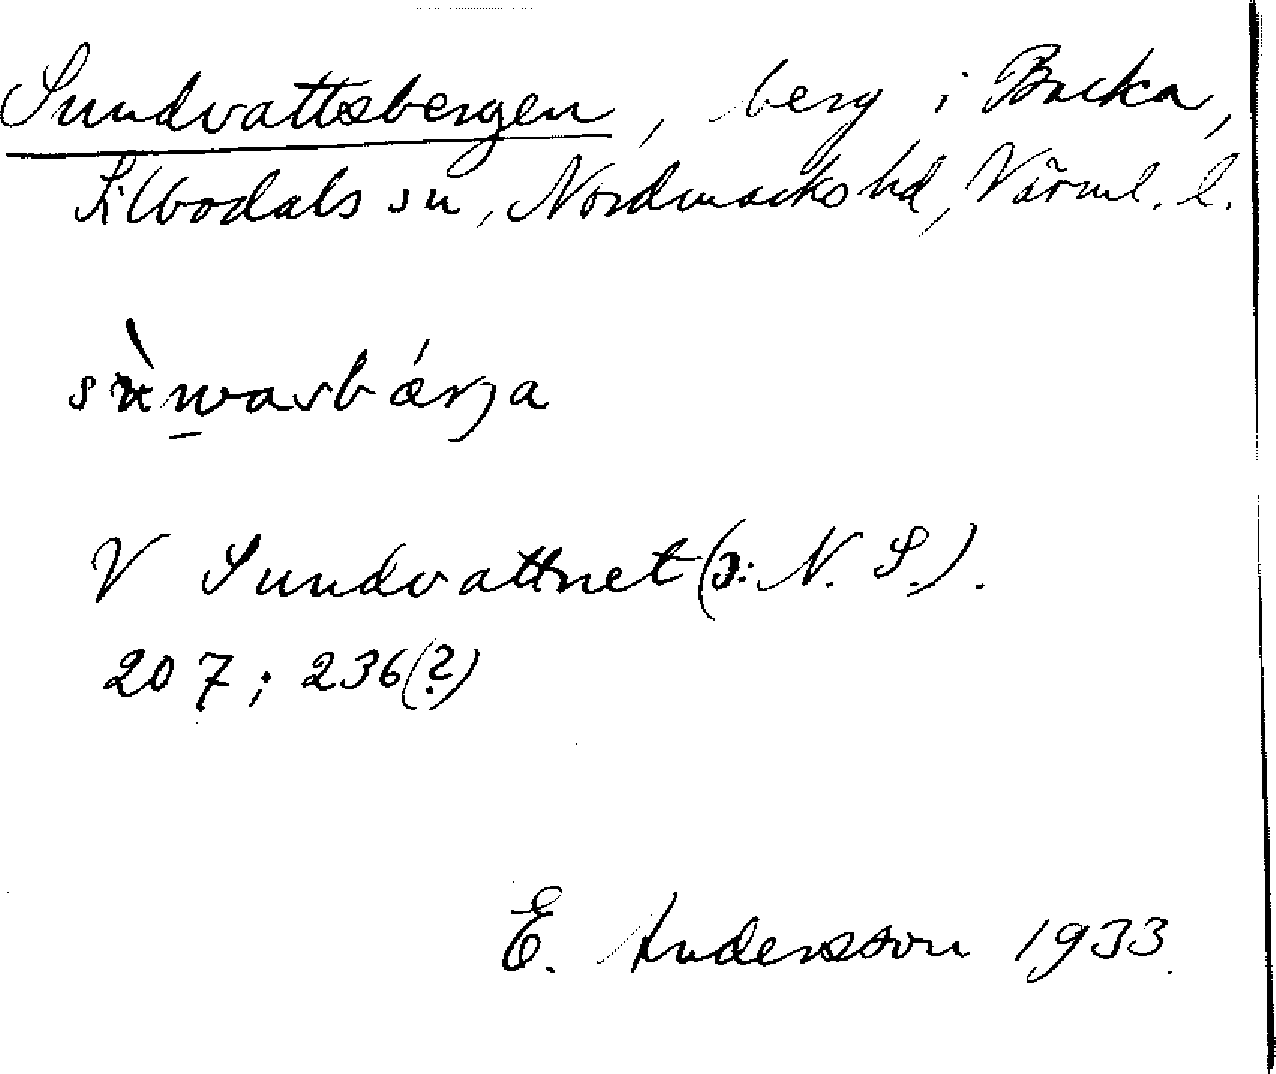 Sundvattsbergen, berg i Backa,
Silbodals sn, Nordmarks hd, Värml. l.
sùn̲vasbǽrja
V Sundvattnet (ɔ: N. S.).
207; 236(?)
E. Andersson 1933.